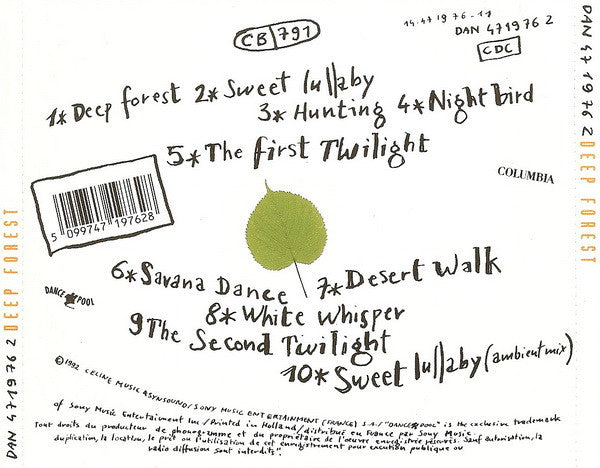 CB 791
14-471976-11
DAN 471976 2
CDC
1* Deep forest 2* Sweet lullaby
3* Hunting 4* Night bird
5* The first Twilight
COLUMBIA
5 099747 197628
6* Savana Dance 7* Desert Walk
DANCE POOL
8* White Whisper
9 The Second Twilight
10* Sweet lullaby (ambient mix)
©1992 CELINE MUSIC & SYNSOUND/SONY MUSIC ENTERTAINMENT (FRANCE) S.A./"DANCE POOL" is the exclusive trademark
of Sony Music Entertainment Inc/Printed in Holland/distribué en France par Sony Music.
Tout droits du producteur de phonogramme et du propriétaire de l'oeuvre enregistrée réservés. Sauf autorisation, la
duplication, la location, le prêt ou l'utilisation de cet enregistrement pour exécution publique ou
radio diffusion sont interdits.
DAN 471976 2 DEEP FOREST
DAN 471976 2 DEEP FOREST